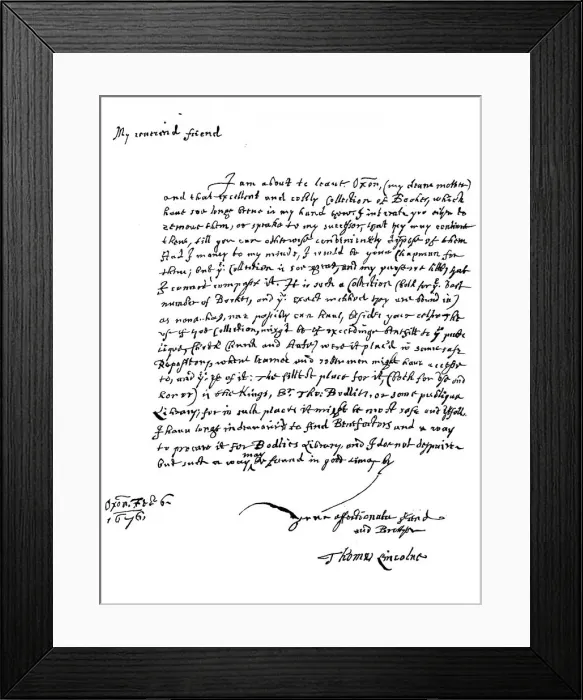 My reverend friend
I am about to leave Oxon, (my deare mother)
and that excellent and costly Collection of Bookes, which
have soe longe beene in my hands; now I intreate you eithr to
remove them, or speake to my successor, that they may continue
there, till you can otherwise conveniently dispose of them
Had I money to my minde, I would be your Chapman for
them; but yr. Collection is soe great, and my purse so litle, that
I cannot compasse it. It is such a Collection (both for yr. vast
number of Bookes, and yr. exact method they are bound in)
as none has, nor possibly can have, besides your selfe. The
use of that Collection, might be of exceedinge benefitt to yr. publique
(both Church and State) were it plac'd in some safe
Repository, where learned and sober men might have accesse
to, and yr. use of it: The fittest place for it, (both for use and
honor) is the Kings, Sr. Tho: Bodlies, or some publique
Library; for in such places it might be most safe and usefull
I have longe indeavour'd to find Benefactors and a way
to procure it for Bodlies Library, and I doe not despaire
but such a way may be found in good time by
Oxon. Feb 6.
1676.
Your affectionate friend
and Brother
Thomas Lincolne